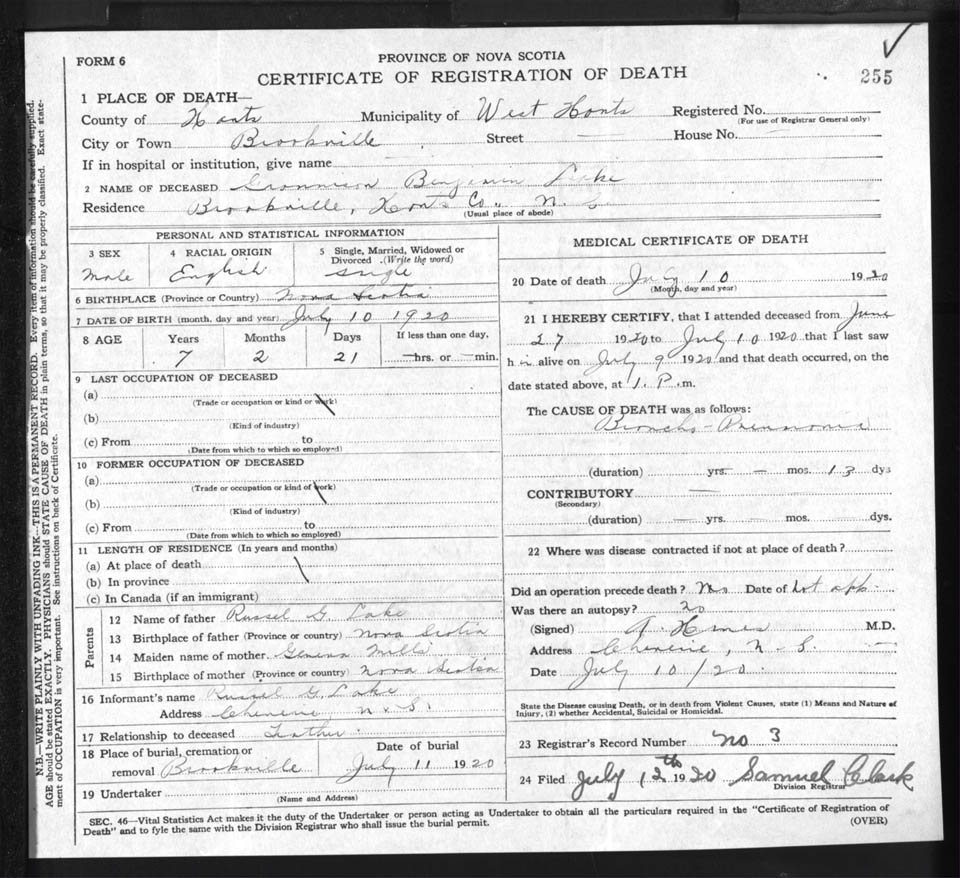 FORM 6
PROVINCE OF NOVA SCOTIA
CERTIFICATE OF REGISTRATION OF DEATH
255
1 PLACE OF DEATH—
County of Hants Municipality of West Hants Registered No.
(For use of Registrar General only)
City or Town Brookville Street — House No. —
If in hospital or institution, give name
2 NAME OF DECEASED Benjamin Lake
Residence Brookville, Hants Co., N. S.
(Usual place of abode)
PERSONAL AND STATISTICAL INFORMATION
3 SEX 4 RACIAL ORIGIN 5 Single, Married, Widowed or Divorced. (Write the word)
Male English single
6 BIRTHPLACE (Province or Country) Nova Scotia
7 DATE OF BIRTH (month, day and year) July 10 1920
8 AGE Years Months Days If less than one day,
7 2 21 —hrs. or —min.
9 LAST OCCUPATION OF DECEASED
(a)
(Trade or occupation or kind or work)
(b)
(Kind of industry)
(c) From to
(Date from which to which so employed)
10 FORMER OCCUPATION OF DECEASED
(a)
(Trade or occupation or kind of work)
(b)
(Kind of industry)
(c) From to
(Date from which to which so employed)
11 LENGTH OF RESIDENCE (In years and months)
(a) At place of death
(b) In province
(c) In Canada (if an immigrant)
Parents
12 Name of father Russel G. Lake
13 Birthplace of father (Province or country) Nova Scotia
14 Maiden name of mother Geneva Mills
15 Birthplace of mother (Province or country) Nova Scotia
16 Informant's name Russel G. Lake
Address Cheverie N. S.
17 Relationship to deceased Father
18 Place of burial, cremation or removal Brookville Date of burial July 11 1920
19 Undertaker
(Name and Address)
MEDICAL CERTIFICATE OF DEATH
20 Date of death July 10 1920
(Month, day and year)
21 I HEREBY CERTIFY, that I attended deceased from June
27 1920 to July 10 1920 that I last saw
h im alive on July 9 1920 and that death occurred, on the
date stated above, at 1. P. m.
The CAUSE OF DEATH was as follows:
Broncho-Pneumonia
(duration) — yrs. — mos. 13 dys
CONTRIBUTORY —
(Secondary)
(duration) — yrs. — mos. dys.
22 Where was disease contracted if not at place of death?
Did an operation precede death? No Date of Not app.
Was there an autopsy? no
(Signed) M.D.
Address Cheverie, N. S.
Date July 10/20
State the Disease causing Death, or in death from Violent Causes, state (1) Means and Nature of
Injury, (2) whether Accidental, Suicidal or Homicidal.
23 Registrar's Record Number No 3
24 Filed July 12th 1920 Samuel Clark
Division Registrar
SEC. 46—Vital Statistics Act makes it the duty of the Undertaker or person acting as Undertaker to obtain all the particulars required in the "Certificate of Registration of
Death" and to fyle the same with the Division Registrar who shall issue the burial permit.
(OVER)
N.B.—WRITE PLAINLY WITH UNFADING INK—THIS IS A PERMANENT RECORD. Every item of information should be carefully supplied.
AGE should be stated EXACTLY. PHYSICIANS should STATE CAUSE OF DEATH in plain terms, so that it may be properly classified. Exact state-
ment of OCCUPATION is very important. See instructions on back of Certificate.